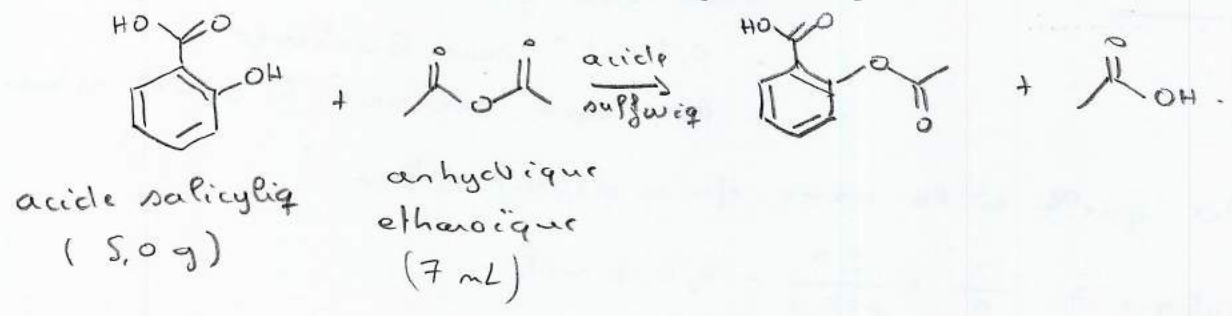 HO O OH + O O O acide sulfuriq HO O O O + O OH .
acide salicyliq
(5,0 g)
anhydrique
ethanoïque
(7 mL)